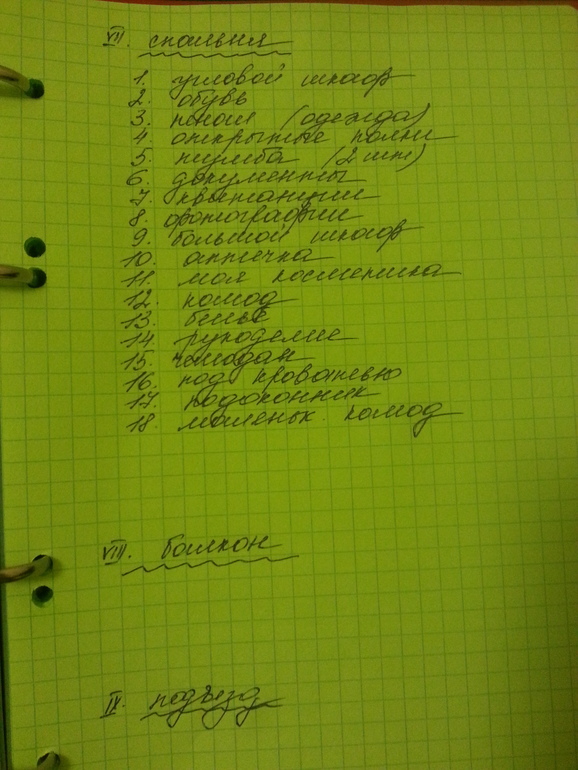 VII. спальня
1. угловой шкаф
2. обувь
3. пенал (одежда)
4. открытые полки
5. тумба (2 шт)
6. документы
7. квитанции
8. фотографии
9. большой шкаф
10. аптечка
11. моя косметика
12. комод
13. бельё
14. рукоделие
15. чемодан
16. под кроватью
17. подоконник
18. маленьк. комод
VIII. балкон
IX. подъезд